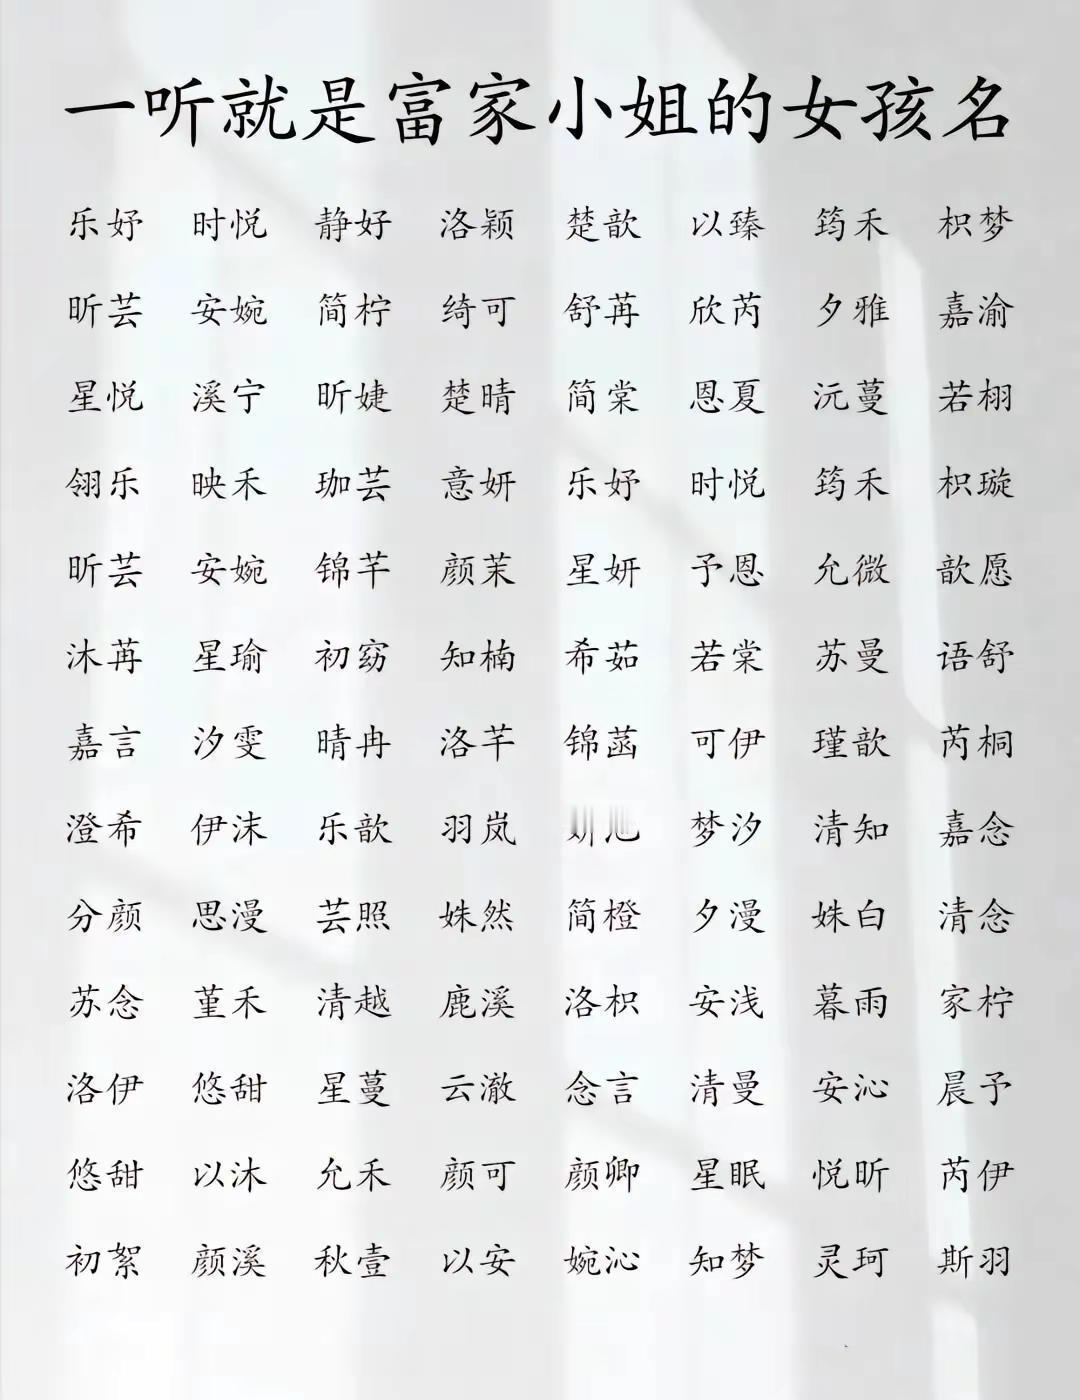 一听就是富家小姐的女孩名
乐妤 时悦 静好 洛颖 楚歆 以臻 筠禾 枳梦
昕芸 安婉 简柠 绮可 舒苒 欣芮 夕雅 嘉渝
星悦 溪宁 昕婕 楚晴 简棠 恩夏 沅蔓 若栩
翎乐 映禾 珈芸 意妍 乐妤 时悦 筠禾 枳璇
昕芸 安婉 锦芊 颜茉 星妍 予恩 允微 歆愿
沐苒 星瑜 初窈 知楠 希茹 若棠 苏曼 语舒
嘉言 汐雯 晴冉 洛芊 锦菡 可伊 瑾歆 芮桐
澄希 伊沫 乐歆 羽岚 梦汐 清知 嘉念
分颜 思漫 芸照 姝然 简橙 夕漫 姝白 清念
苏念 堇禾 清越 鹿溪 洛枳 安浅 暮雨 家柠
洛伊 悠甜 星蔓 云澈 念言 清曼 安沁 晨予
悠甜 以沐 允禾 颜可 颜卿 星眠 悦昕 芮伊
初絮 颜溪 秋壹 以安 婉沁 知梦 灵珂 斯羽